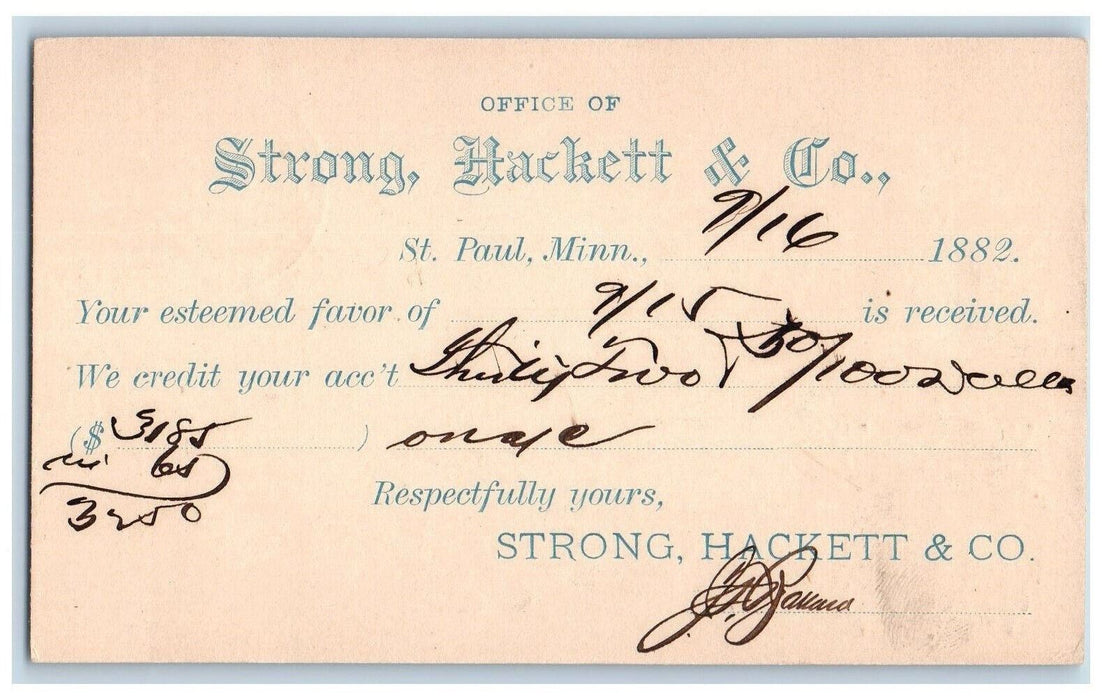 OFFICE OF
Strong, Hackett & Co.,
St. Paul, Minn., 9/16 1882.
Your esteemed favor of 9/15 is received.
We credit your acc't Thirty Two & 50/100 Dollars
($ 3185 ) on a/c
in 65
3250
Respectfully yours,
STRONG, HACKETT & CO.